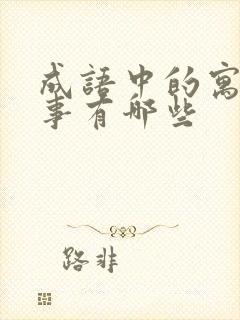 成語中的寓
事有哪些
路非